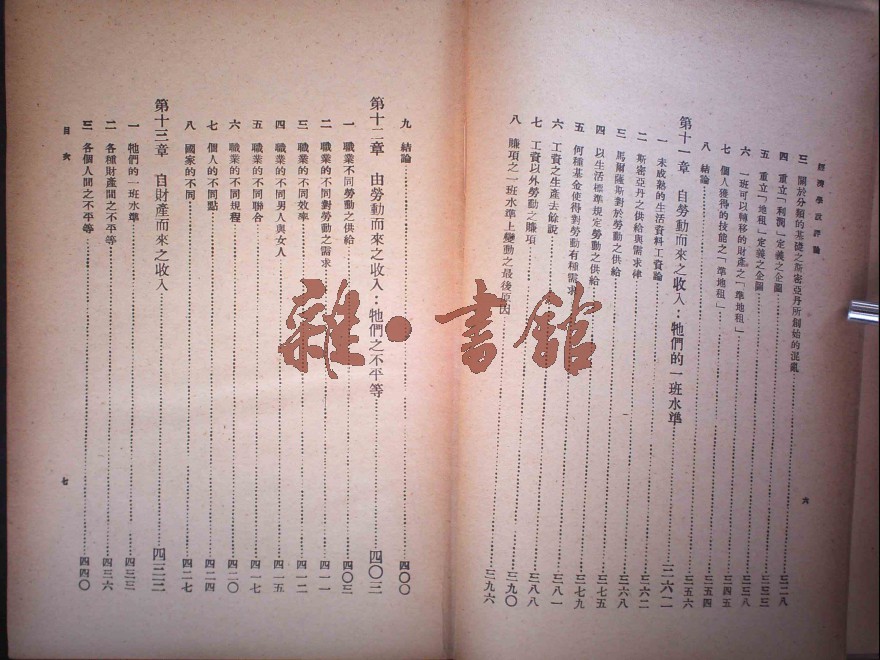 經濟學說評論
三 關於分類的基礎之斯密亞丹所創始的混亂……三二八
四 重立「利潤」定義之企圖……三三三
五 重立「地租」定義之企圖……三三三
六 一班可以轉移的財產之「準地租」……三三八
七 個人獲得的技能之「準地租」……三四五
八 結論……三五四
第十一章 自勞動而來之收入：牠們的一班水準……三六二
一 未成熟的生活資料工資論……三五六
二 斯密亞丹之供給與需求律……三六二
三 馬爾薩斯對於勞動之供給……三六八
四 以生活標準規定勞動之供給……三七五
五 何種基金使得對勞動有種需求……三七九
六 工資之生產去餘說……三八一
七 工資以外勞動之賺項……三八八
八 賺項之一班水準上變動之最後原因……三九〇
三九六
六
九 結論……四〇〇
第十二章 由勞動而來之收入：牠們之不平等……四〇三
一 職業不同勞動之供給……四〇三
二 職業的不同對勞動之需求……四一一
三 職業的不同效率……四一二
四 職業的不同男人與女人……四一五
五 職業的不同聯合……四一七
六 職業的不同規程……四二〇
七 個人的不同點……四二四
八 國家的不同……四二七
第十三章 自財產而來之收入……四三三
一 牠們的一班水準……四三三
二 各種財產間之不平等……四三六
三 各個人間之不平等……四四〇
目次
七
雜·書館